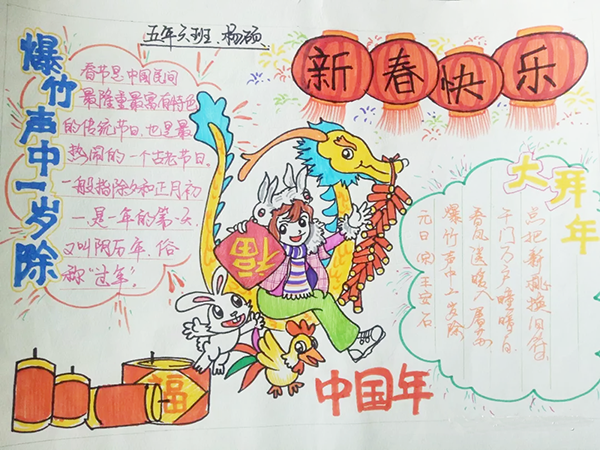 五年六班.杨硕
爆竹声中一岁除
春节是中国民间
最隆重最富有特色
的传统节日.也是最
热闹的一个古老节日.
一般指除夕和正月初
一.是一年的第一天
又叫阴历年.俗
称"过年".
新春快乐
大拜年
元日(宋)王安石
爆竹声中一岁除
春风送暖入屠苏
千门万户曈曈日
总把新桃换旧符
福
福
中国年